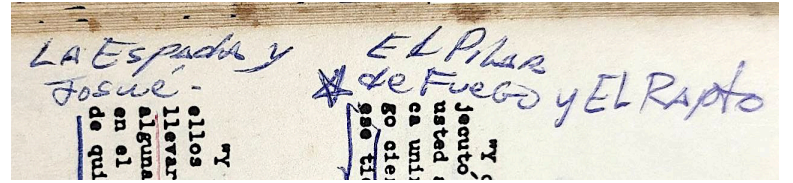 LA Espada y
Josué -
EL Pilar
de Fuego y EL Rapto
"Y
ellos
llevar
alguna
en el
de qui
"Y
jecutó
usted
ca unir
go cien
ese tie